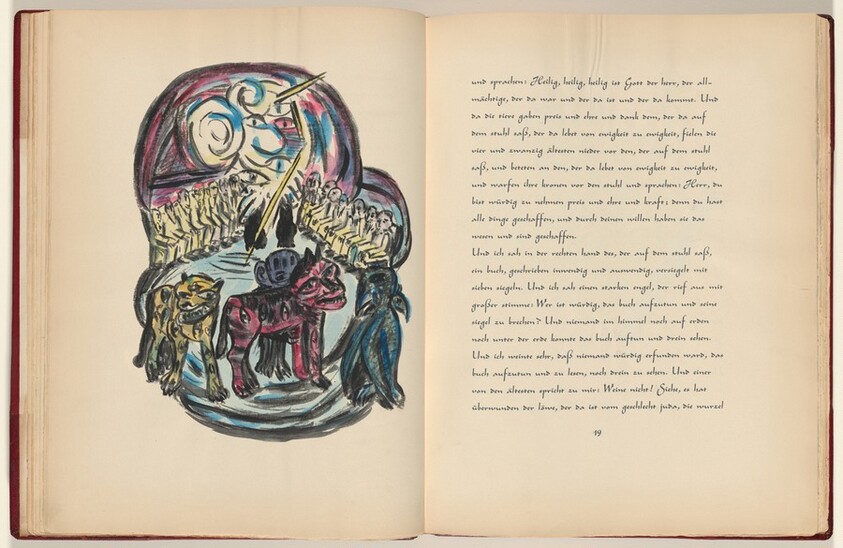 und sprachen: Heilig, heilig, heilig ist Gott der herr, der all-
mächtige, der da war und der da ist und der da kommt. Und
da die tiere gaben preis und ehre und dank dem, der da auf
dem stuhl saß, der da lebet von ewigkeit zu ewigkeit, fielen die
vier und zwanzig ältesten nieder vor den, der auf dem stuhl
saß, und beteten an den, der da lebet von ewigkeit zu ewigkeit,
und warfen ihre kronen vor den stuhl und sprachen: Herr, du
bist würdig zu nehmen preis und ehre und kraft; denn du hast
alle dinge geschaffen, und durch deinen willen haben sie das
wesen und sind geschaffen.
Und ich sah in der rechten hand des, der auf dem stuhl saß,
ein buch, geschrieben inwendig und auswendig, versiegelt mit
sieben siegeln. Und ich sah einen starken engel, der rief aus mit
großer stimme: Wer ist würdig, das buch aufzutun und seine
siegel zu brechen? Und niemand im himmel noch auf erden
noch unter der erde konnte das buch auftun und drein sehen.
Und ich weinte sehr, daß niemand würdig erfunden ward, das
buch aufzutun und zu lesen, noch drein zu sehen. Und einer
von den ältesten spricht zu mir: Weine nicht! Siehe, es hat
überwunden der löwe, der da ist vom geschlecht juda, die wurzel
19